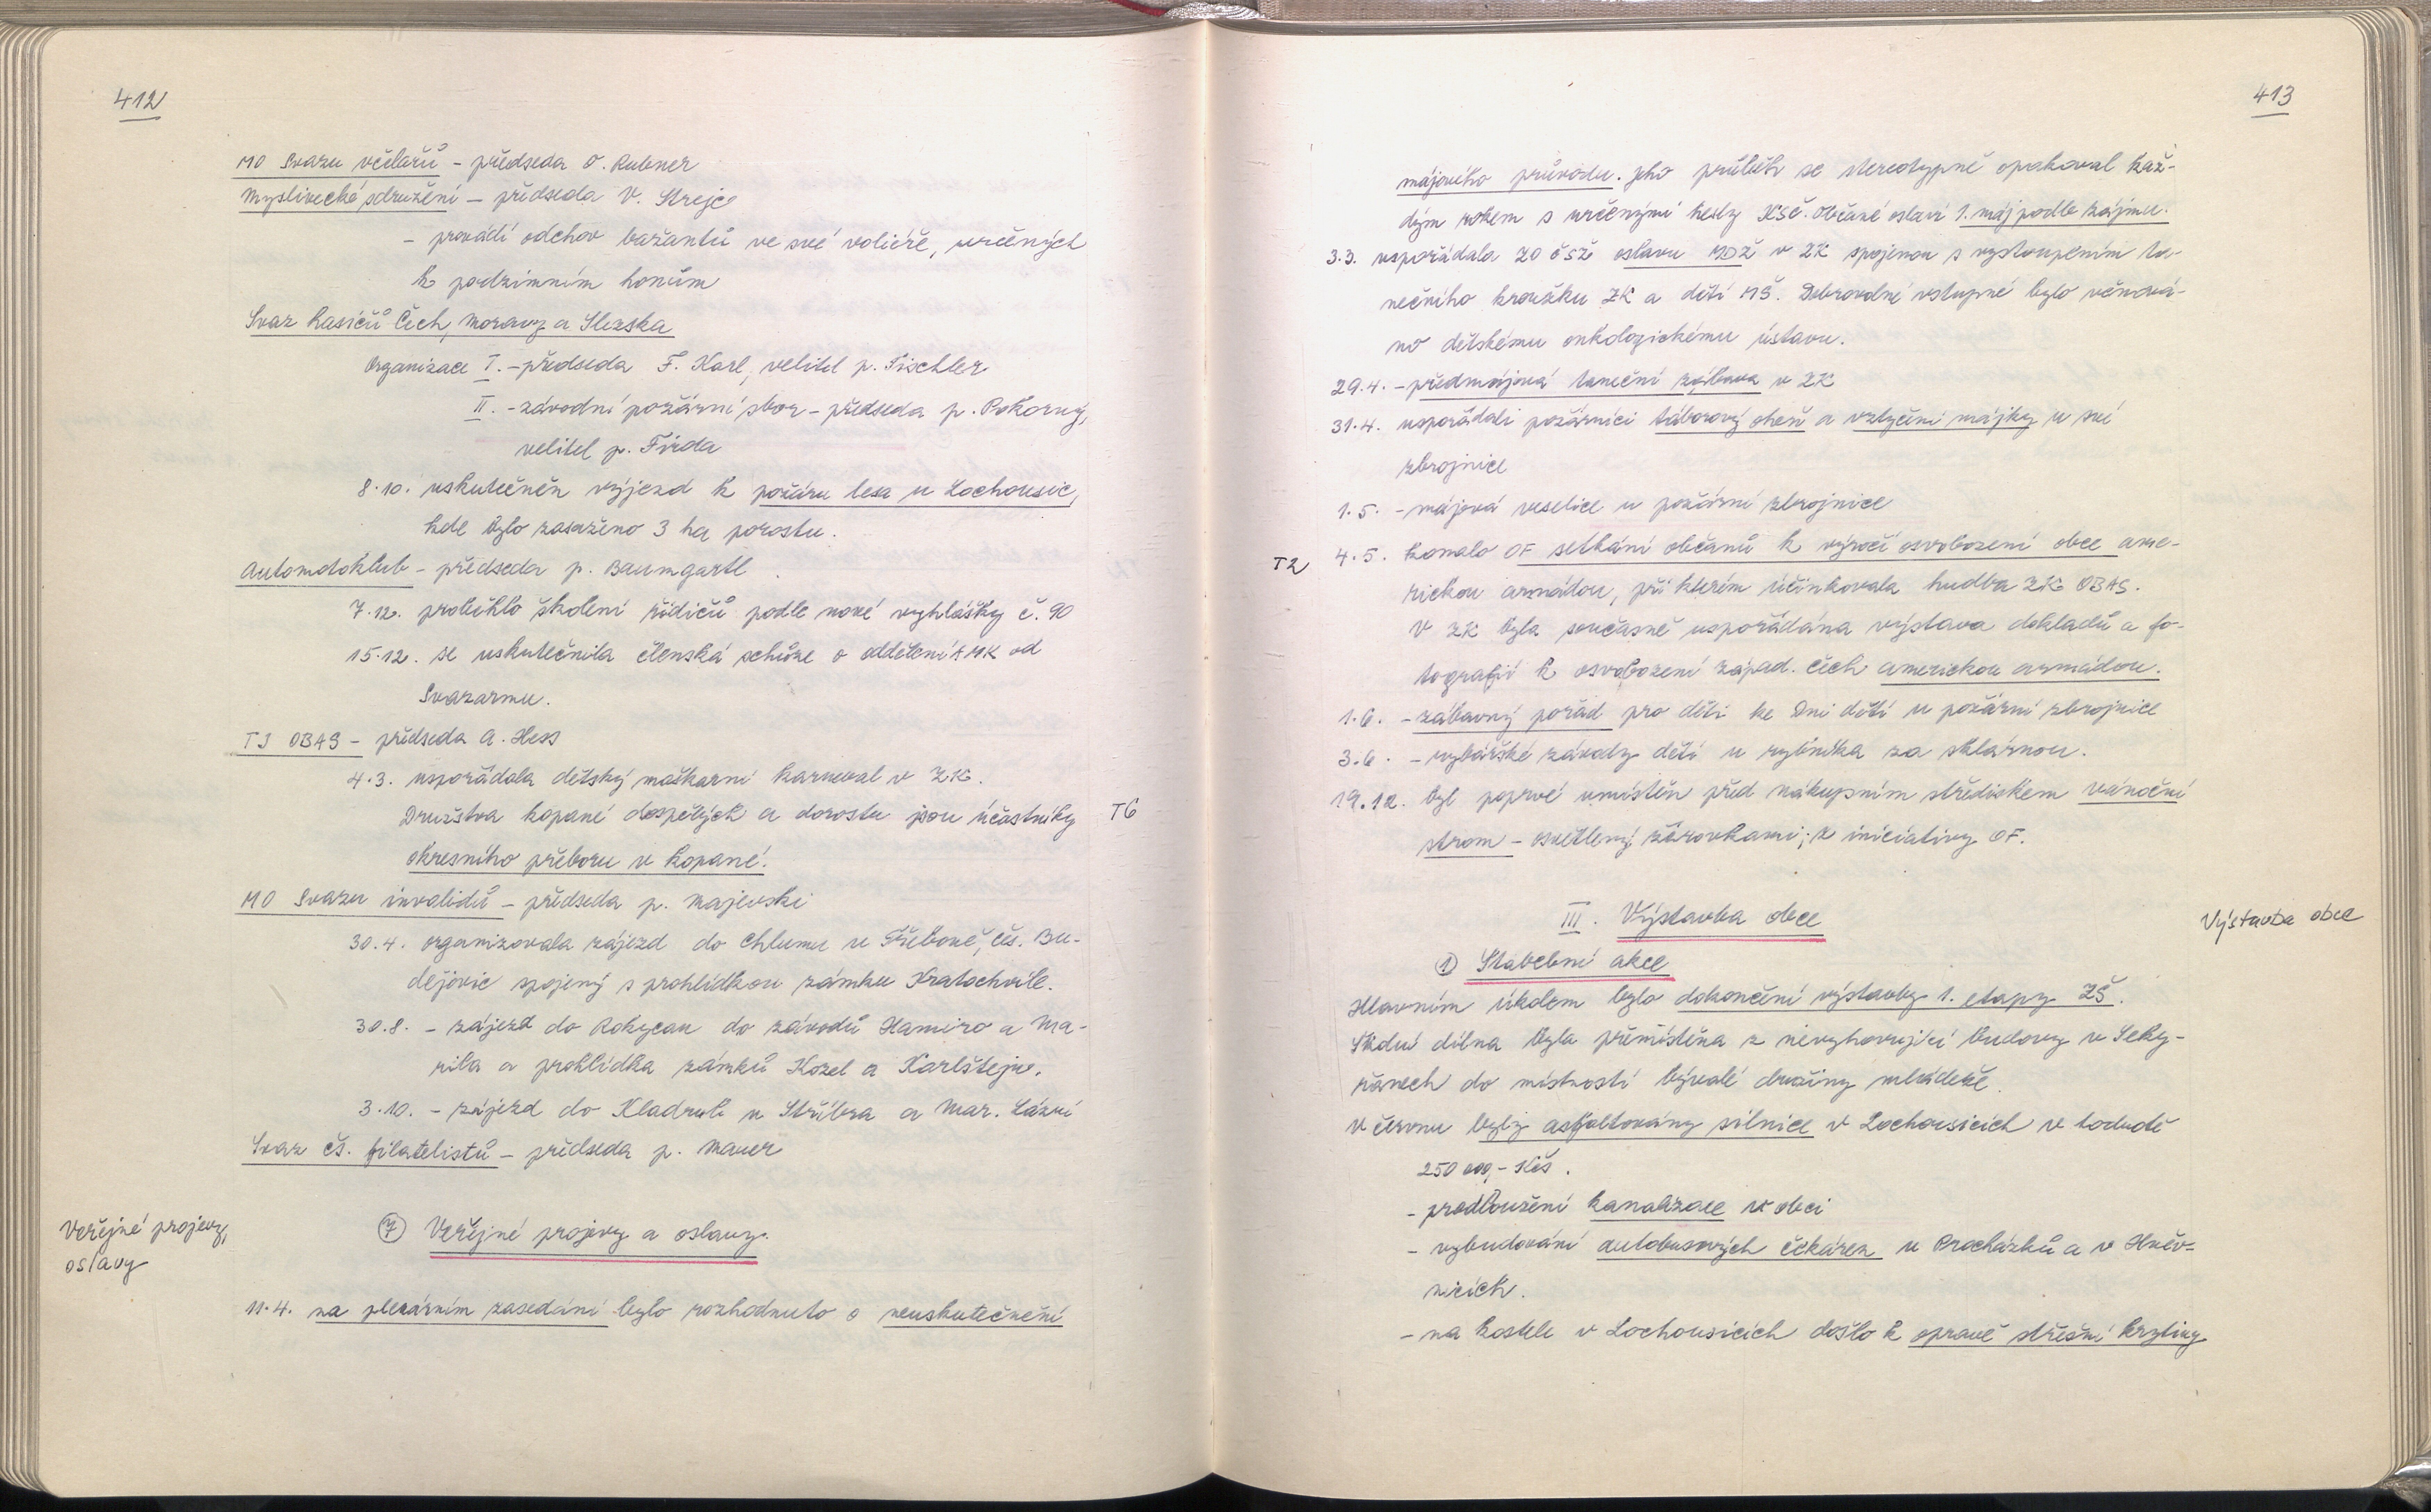 412
MO Svazu včelařů - předseda O. Rubner
Myslivecké sdružení - předseda V. Strejc
- provádí odchov bažantů ve své voliéře, určených
k podzimním honům
Svaz hasičů Čech, Moravy a Slezska
Organizace I. - předseda F. Karl, velitel p. Tischler
II. - závodní požární sbor - předseda p. Pokorný,
velitel p. Firda
8.10. uskutečněn výjezd k požáru lesa u Lochousic,
kde bylo zasaženo 3 ha porostu.
Automotoklub - předseda p. Baumgartl
7.12. proběhlo školení řidičů podle nové vyhlášky č. 90
15.12. se uskutečnila členská schůze o oddělení AMK od
Svazarmu.
TJ OBAS - předseda A. Hess
4.3. uspořádala dětský maškarní karneval v ZK.
Družstva kopané dospělých a dorostu jsou účastníky T6
okresního přeboru v kopané.
MO Svazu invalidů - předseda p. Majevski
30.4. organizovala zájezd do Chlumu u Třeboně, Čes. Bu-
dějovic spojený s prohlídkou zámku Kratochvíle.
30.8. - zájezd do Rokycan do závodů Hamiro a Ma-
rila a prohlídka zámků Kozel a Karlštejn.
3.10. - zájezd do Kladrub u Stříbra a Mar. Lázní
Svaz čs. filatelistů - předseda p. Mauer
Veřejné projevy,
oslavy
7 Veřejné projevy a oslavy.
11.4. na plenárním zasedání bylo rozhodnuto o neuskutečnění
413
májového průvodu. Jeho průběh se stereotypně opakoval kaž-
dým rokem s určenými hesly KSČ. Občané oslaví 1. máj podle zájmu.
3.3. uspořádala ZO ČSŽ oslavu MDŽ v ZK spojenou s vystoupením ta-
nečního kroužku ZK a dětí MŠ. Dobrovolné vstupné bylo věnová-
no dětskému onkologickému ústavu.
29.4. - předmájová taneční zábava v ZK
31.4. uspořádali požárníci táborový oheň a vztyčení májky u své
zbrojnice
1.5. - májová veselice u požární zbrojnice
T2 4.5. konalo OF setkání občanů k výročí osvobození obce ame-
rickou armádou, při kterém účinkovala hudba ZK OBAS.
V ZK byla současně uspořádána výstava dokladů a fo-
tografií k osvobození západ. Čech americkou armádou.
1.6. - zábavný pořad pro děti ke Dni dětí u požární zbrojnice
3.6. - rybářské závody dětí u rybníka za sklárnou.
19.12. byl poprvé umístěn před nákupním střediskem vánoční
strom - osvětlený žárovkami; z iniciativy OF.
III. Výstavba obce
Výstavba obce
1 Stavební akce
Hlavním úkolem bylo dokončení výstavby 1. etapy ZŠ.
Školní dílna byla přemístěna z nevyhovující budovy v Seky-
řanech do místností bývalé družiny mládeže.
V červnu byly asfaltovány silnice v Lochousicích v hodnotě
250 000,- Kčs.
- prodloužení kanalizace v obci
- vybudování autobusových čekáren u Procházků a v Hněv-
nicích.
- na kostele v Lochousicích došlo k opravě střešní krytiny